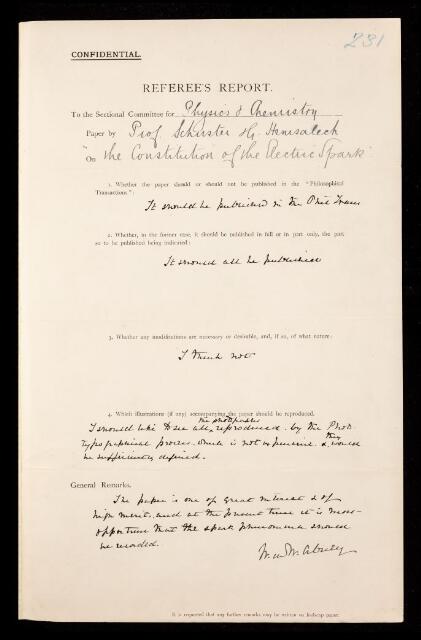 CONFIDENTIAL.
231
REFEREE'S REPORT.
To the Sectional Committee for Physics & Chemistry
Paper by Prof Schuster & G. Hemsalech
"On the Constitution of the Electric Spark"
1. Whether the paper should or should not be published in the "Philosophical
Transactions":
It should be published in the Phil Trans
2. Whether, in the former case, it should be published in full or in part only, the part
so to be published being indicated:
It should all be published
3. Whether any modifications are necessary or desirable, and, if so, of what nature:
I think not
4. Which illustrations (if any) accompanying the paper should be reproduced.
the photographs
I should like to see all reproduced by the Photo
typographical process which is not expensive & they would
be sufficiently defined.
General Remarks.
The paper is one of great interest & of
high merit and at the present time it is most
opportune that the spark phenomena should
be recorded.
W. de W. Abney
It is requested that any further remarks may be written on foolscap paper.